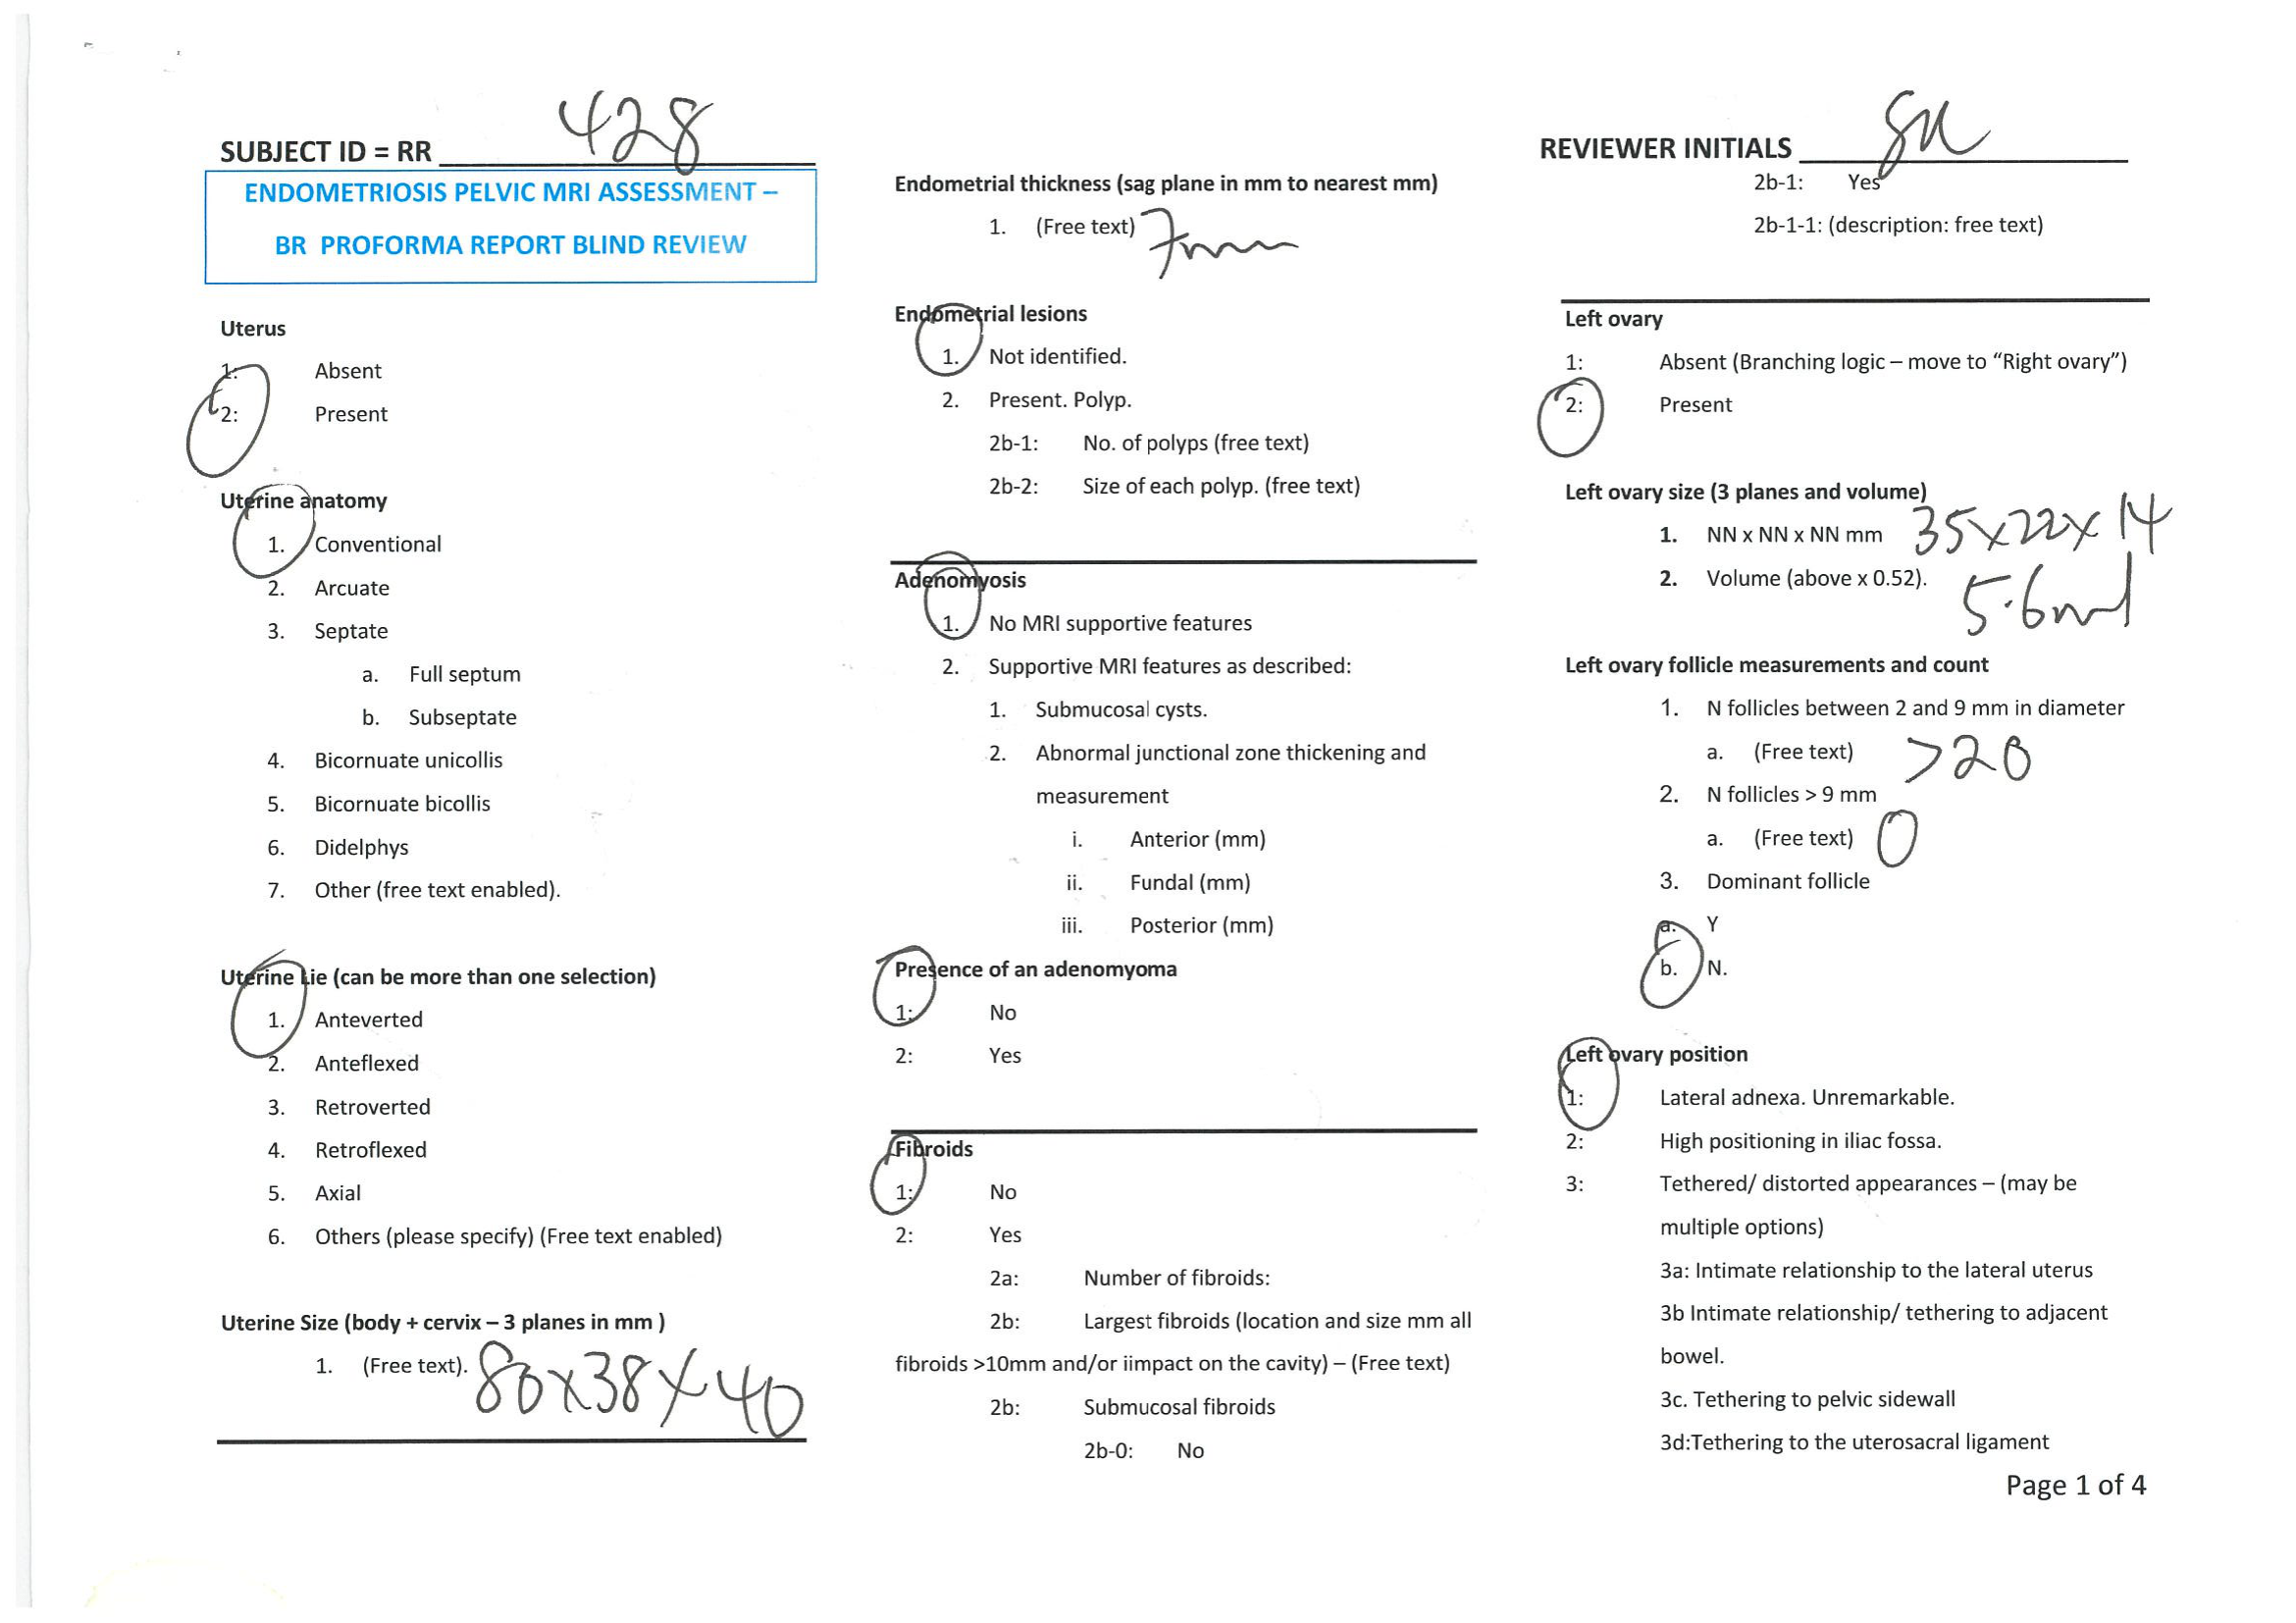 SUBJECT ID = RR 428
ENDOMETRIOSIS PELVIC MRI ASSESSMENT –
BR PROFORMA REPORT BLIND REVIEW
Uterus
1: Absent
2: Present
Uterine anatomy
1. Conventional
2. Arcuate
3. Septate
a. Full septum
b. Subseptate
4. Bicornuate unicollis
5. Bicornuate bicollis
6. Didelphys
7. Other (free text enabled).
Uterine Lie (can be more than one selection)
1. Anteverted
2. Anteflexed
3. Retroverted
4. Retroflexed
5. Axial
6. Others (please specify) (Free text enabled)
Uterine Size (body + cervix – 3 planes in mm )
1. (Free text). 80x38x40
Endometrial thickness (sag plane in mm to nearest mm)
1. (Free text) 7mm
Endometrial lesions
1. Not identified.
2. Present. Polyp.
2b-1: No. of polyps (free text)
2b-2: Size of each polyp. (free text)
Adenomyosis
1. No MRI supportive features
2. Supportive MRI features as described:
1. Submucosal cysts.
2. Abnormal junctional zone thickening and
measurement
i. Anterior (mm)
ii. Fundal (mm)
iii. Posterior (mm)
Presence of an adenomyoma
1: No
2: Yes
Fibroids
1: No
2: Yes
2a: Number of fibroids:
2b: Largest fibroids (location and size mm all
fibroids >10mm and/or iimpact on the cavity) – (Free text)
2b: Submucosal fibroids
2b-0: No
REVIEWER INITIALS
2b-1: Yes
2b-1-1: (description: free text)
Left ovary
1: Absent (Branching logic – move to “Right ovary”)
2: Present
Left ovary size (3 planes and volume)
1. NN x NN x NN mm 35x22x14
2. Volume (above x 0.52). 5.6ml
Left ovary follicle measurements and count
1. N follicles between 2 and 9 mm in diameter
a. (Free text) >20
2. N follicles > 9 mm
a. (Free text) 0
3. Dominant follicle
a. Y
b. N.
Left ovary position
1: Lateral adnexa. Unremarkable.
2: High positioning in iliac fossa.
3: Tethered/ distorted appearances – (may be
multiple options)
3a: Intimate relationship to the lateral uterus
3b Intimate relationship/ tethering to adjacent
bowel.
3c. Tethering to pelvic sidewall
3d:Tethering to the uterosacral ligament
Page 1 of 4